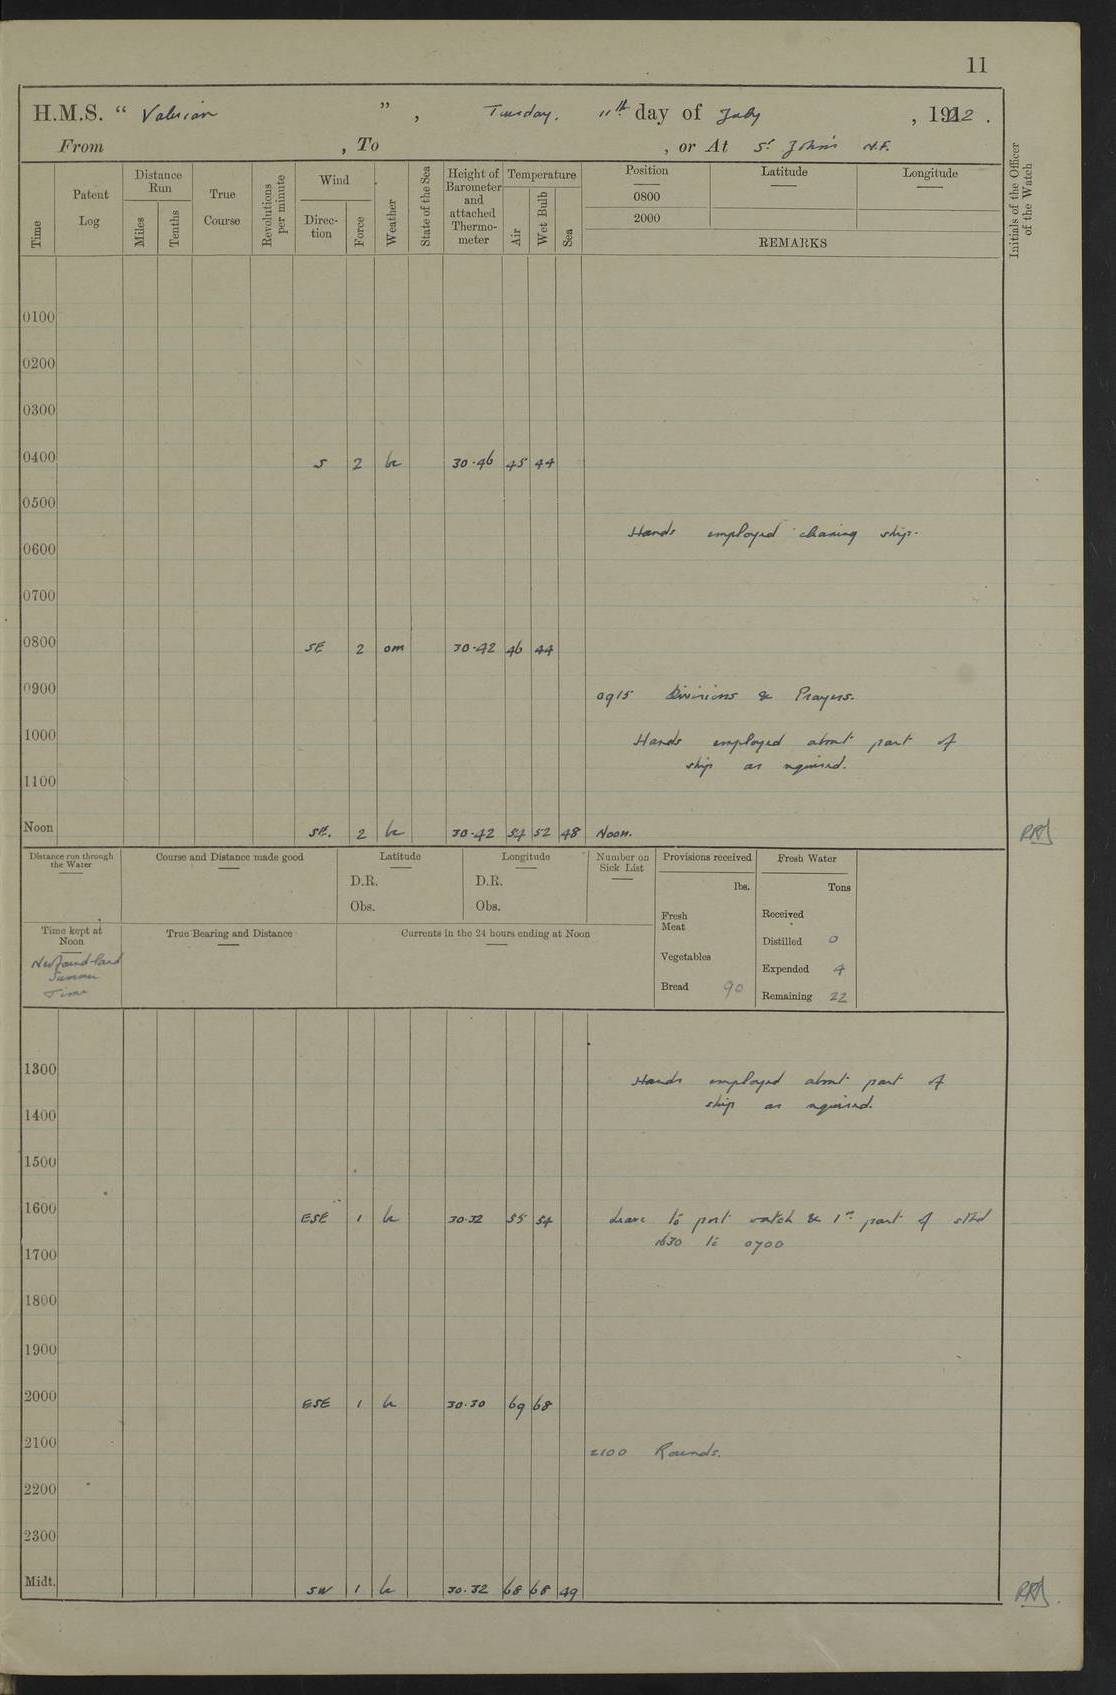 11
H.M.S. “ Valerian ” , Tuesday. 11th day of July , 1922 .
From , To , or At St John's N.F.
Time
Patent Log
Distance Run
Miles
Tenths
True Course
Revolutions per minute
Wind
Direction
Force
Weather
State of the Sea
Height of Barometer and attached Thermometer
Temperature
Air
Wet Bulb
Sea
Position
0800
2000
Latitude
Longitude
REMARKS
Initials of the Officer of the Watch
0100
0200
0300
0400 S 2 bc 30.46 45 44
0500
Hands employed cleaning ship.
0600
0700
0800 SE 2 om 30.42 46 44
0900 0915 Divisions & Prayers.
1000 Hands employed about part of
ship as required.
1100
Noon SE. 2 bc 30.42 54 52 48 Noon.
Distance run through the Water
Course and Distance made good
Latitude
D.R.
Obs.
Longitude
D.R.
Obs.
Number on Sick List
Provisions received
lbs.
Fresh Meat
Vegetables
Bread 90
Fresh Water
Tons
Received
Distilled 0
Expended 4
Remaining 22
Time kept at Noon
Newfoundland
Summer
Time
True Bearing and Distance
Currents in the 24 hours ending at Noon
1300 Hands employed about part of
1400 ship as required.
1500
1600 ESE 1 bc 30.32 55 54 Leave to port watch & 1st part of stbd
1630 to 0700
1700
1800
1900
2000 ESE 1 bc 30.30 69 68
2100 2100 Rounds.
2200
2300
Midt. SW 1 bc 30.32 68 68 49